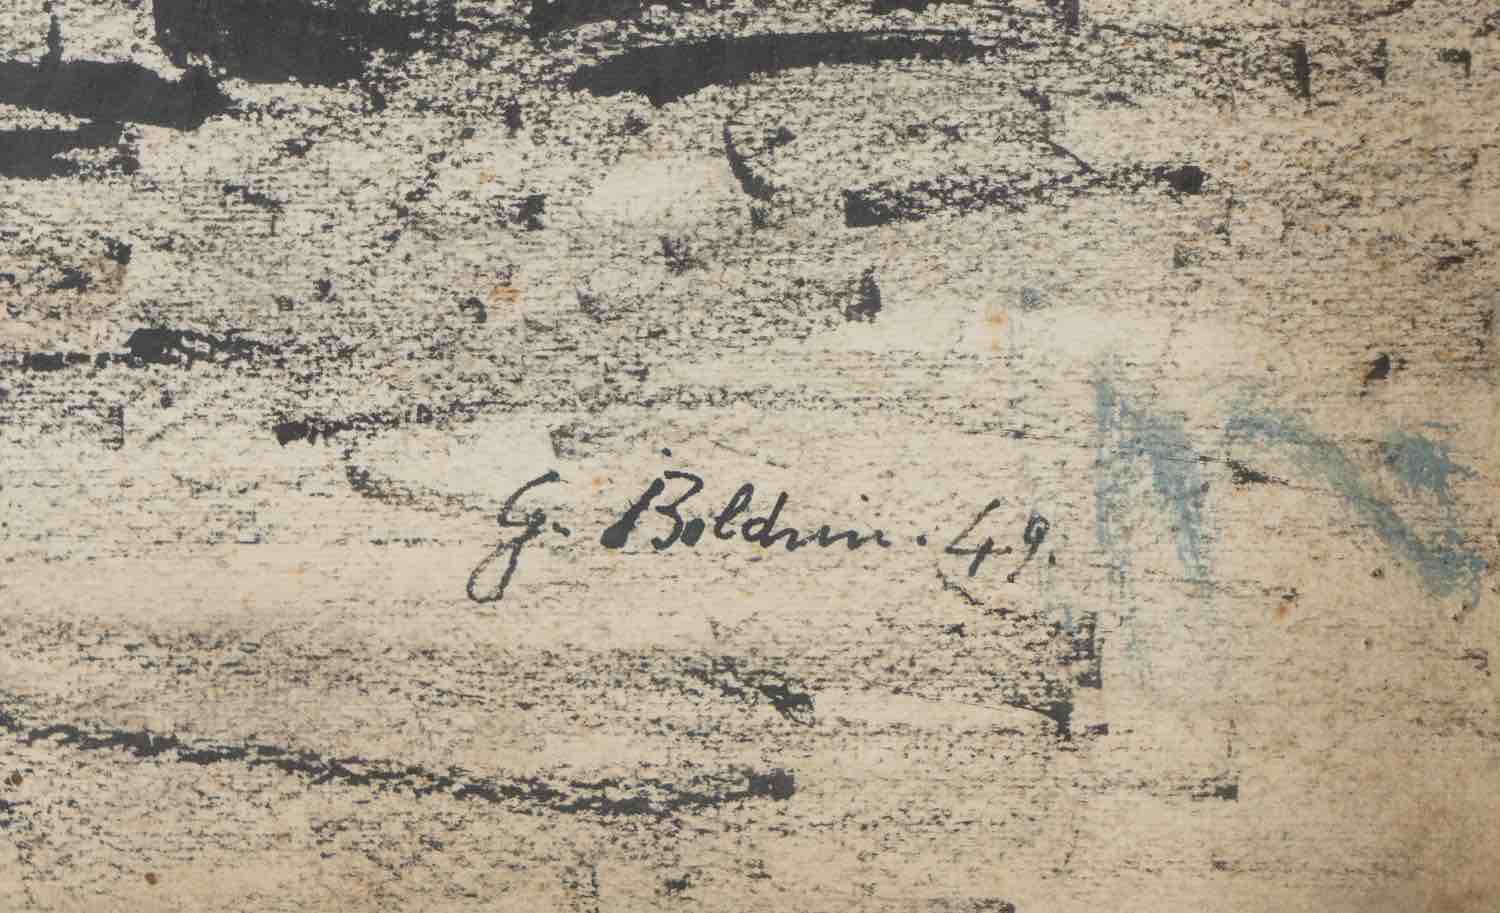 G. Boldrin. 49.